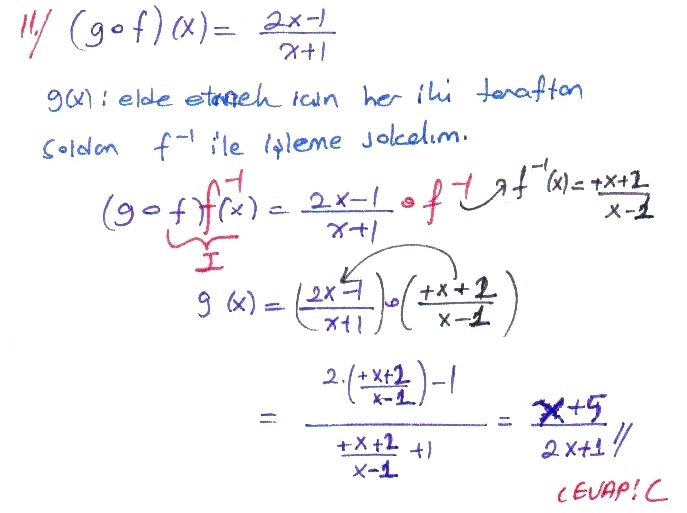 11./ (gof)(x) = 2x-1 / x+1
g(x)'i elde etmek için her iki taraftan
soldan f⁻¹ ile işleme sokalım.
(gof)f⁻¹(x) = 2x-1 / x+1 o f⁻¹ → f⁻¹(x) = +x+2 / x-1
I
g(x) = (2x-1 / x+1) o (+x+2 / x-1)
= 2.(+x+2 / x-1) -1 / +x+2 / x-1 +1 = x+5 / 2x+1 //
CEVAP! C